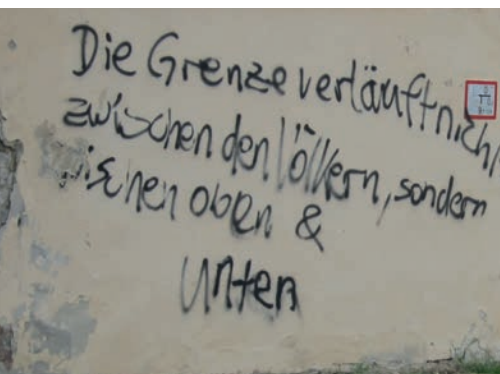 Die Grenze verläuft nicht
zwischen den Völkern, sondern
zwischen oben &
unten